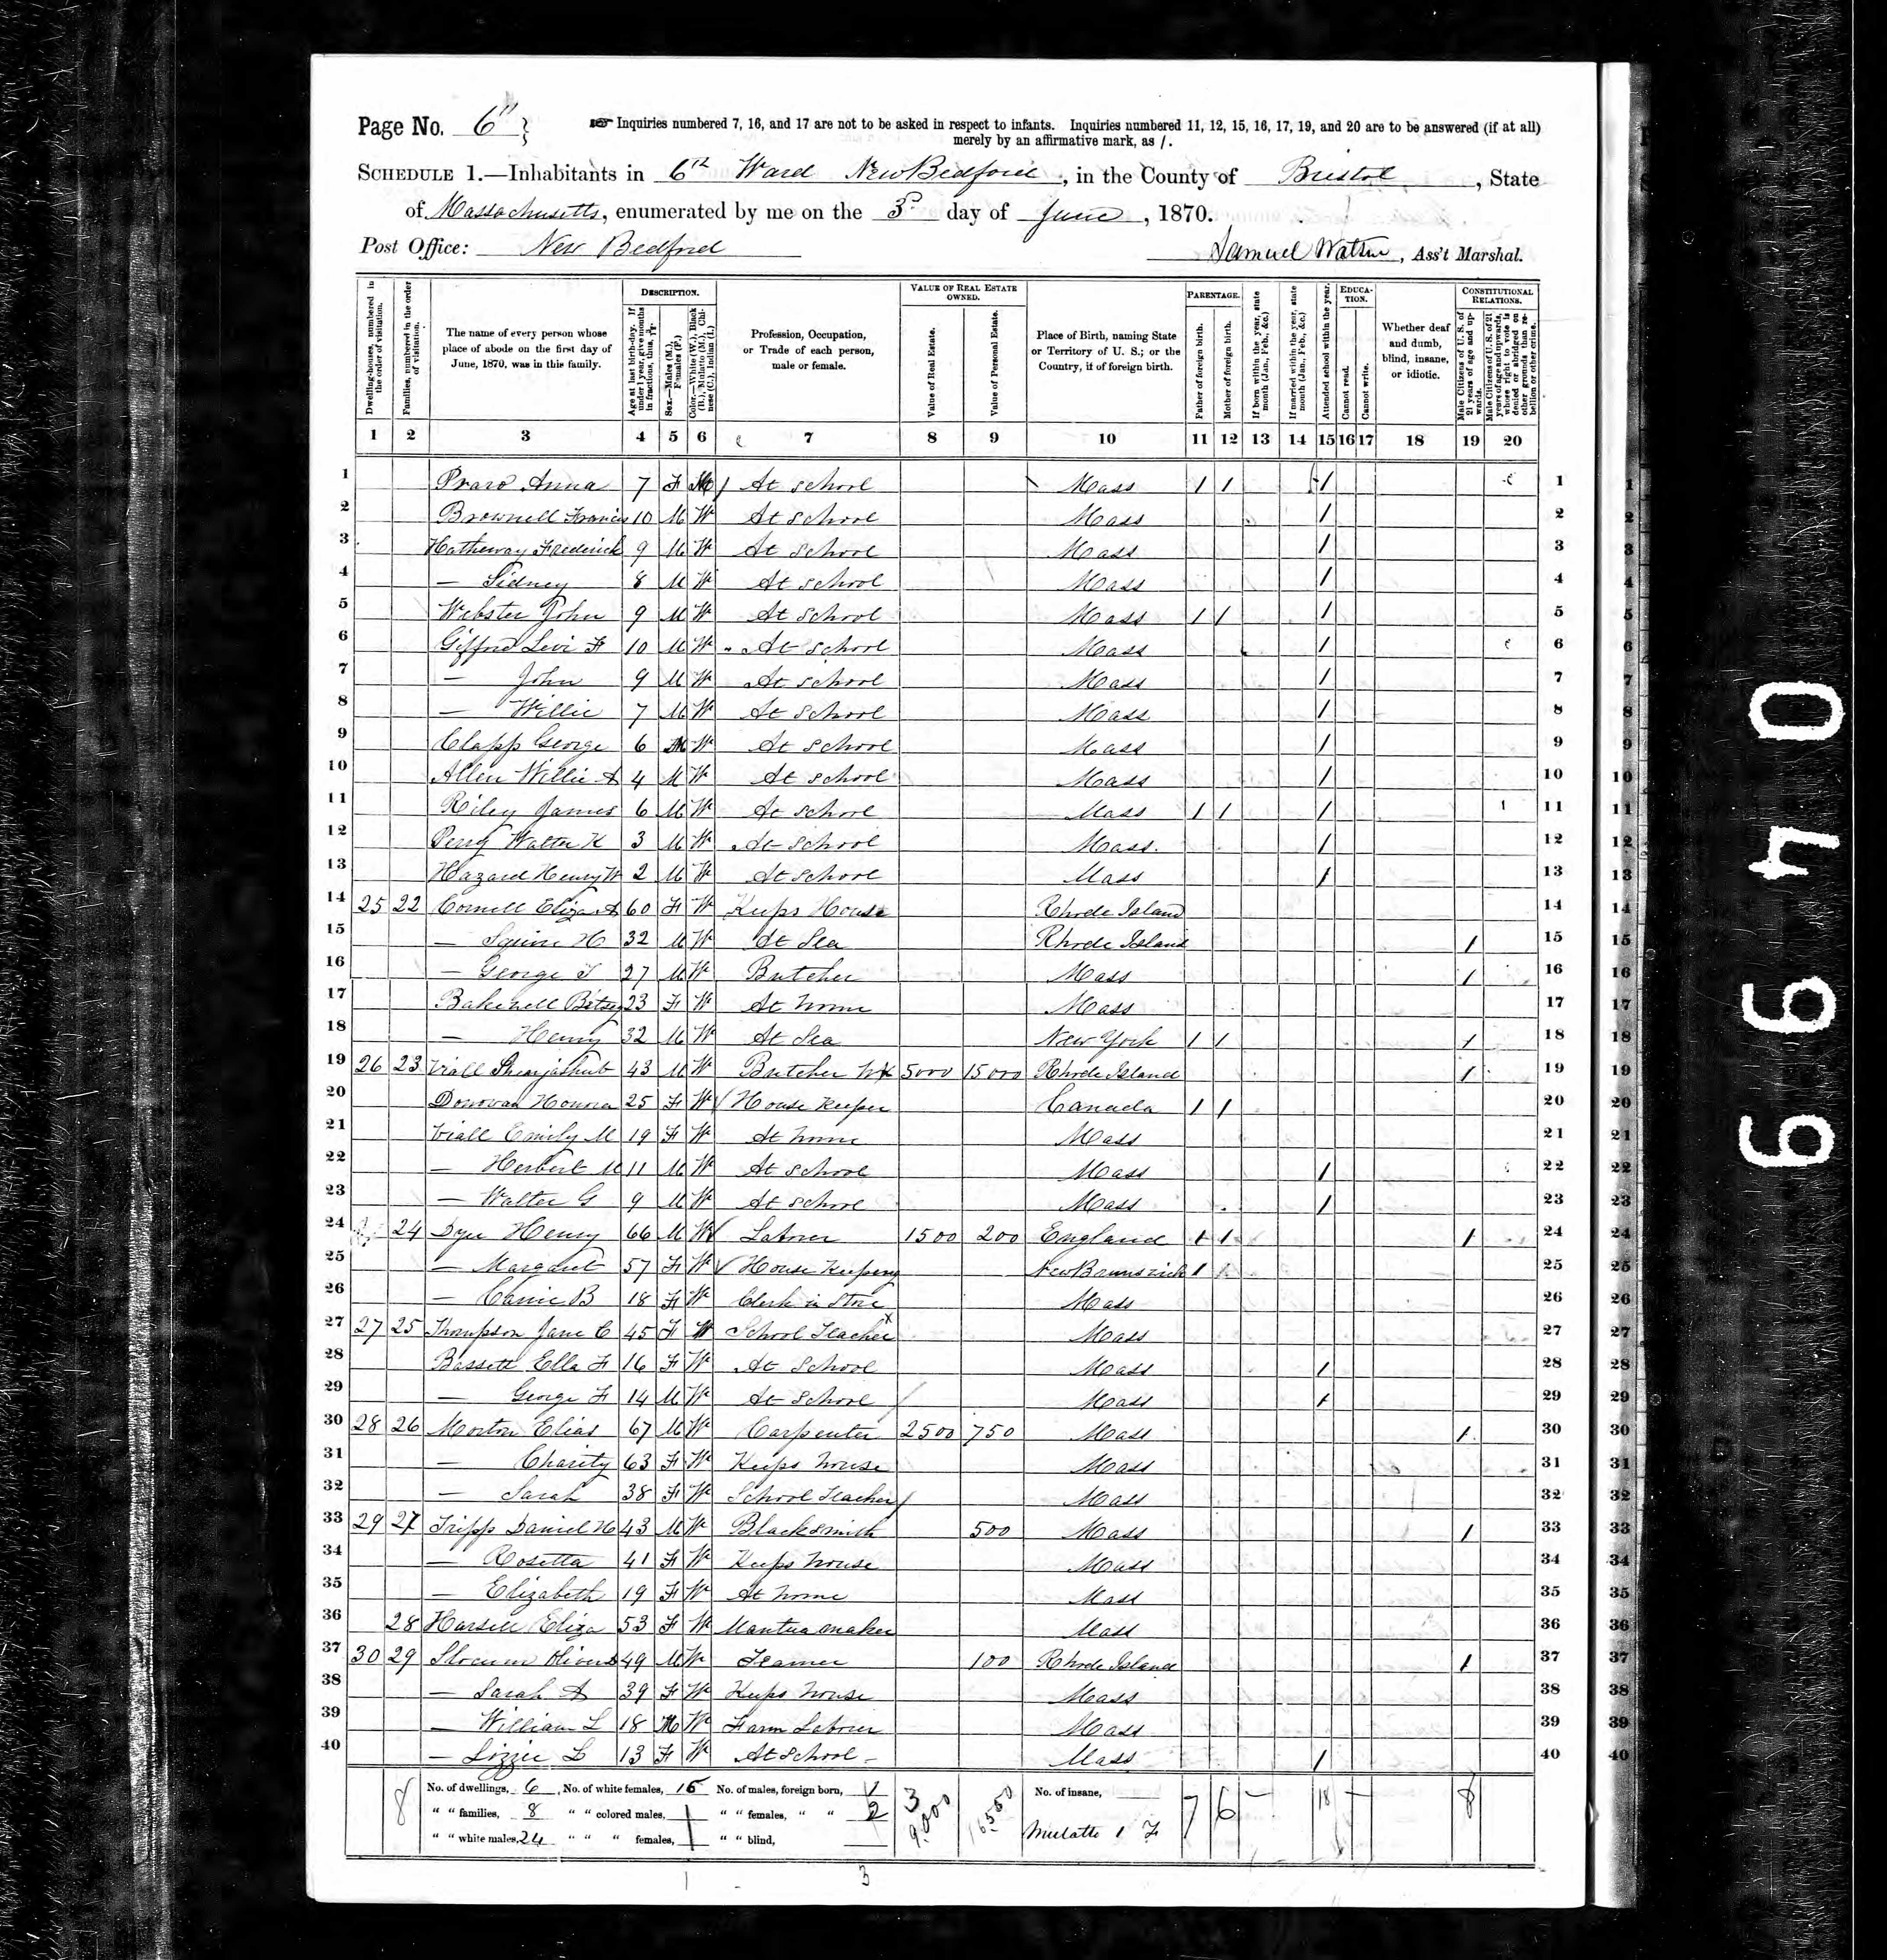 Page No. 6"
Inquiries numbered 7, 16, and 17 are not to be asked in respect to infants. Inquiries numbered 11, 12, 15, 16, 17, 19, and 20 are to be answered (if at all)
merely by an affirmative mark, as /.
SCHEDULE 1.—Inhabitants in 6th Ward New Bedford, in the County of Bristol, State
of Massachusetts, enumerated by me on the 3d day of June, 1870.
Post Office: New Bedford
Samuel Watson, Ass't Marshal.
Dwelling-houses, numbered in the order of visitation.
Families, numbered in the order of visitation.
The name of every person whose place of abode on the first day of June, 1870, was in this family.
DESCRIPTION.
Age at last birth-day. If under 1 year, give months in fractions, thus,
Sex.—Males (M.), Females (F.)
Color.—White (W.), Black (B.), Mulatto (M.), Chinese (C.), Indian (I.)
Profession, Occupation, or Trade of each person, male or female.
VALUE OF REAL ESTATE OWNED.
Value of Real Estate.
Value of Personal Estate.
Place of Birth, naming State or Territory of U. S.; or the Country, if of foreign birth.
PARENTAGE.
Father of foreign birth.
Mother of foreign birth.
If born within the year, state month (Jan., Feb., &c.)
If married within the year, state month (Jan., Feb., &c.)
Attended school within the year.
EDUCATION.
Cannot read.
Cannot write.
Whether deaf and dumb, blind, insane, or idiotic.
CONSTITUTIONAL RELATIONS.
Male Citizens of U. S. of 21 years of age and upwards.
Male Citizens of U. S. of 21 years of age and upwards, whose right to vote is denied or abridged on other grounds than rebellion or other crime.
1 2 3 4 5 6 7 8 9 10 11 12 13 14 15 16 17 18 19 20
1 Anna 7 F At School Mass / / / 1
2 Brownell Francis 10 M W At School Mass / 2
3 Hatheway Frederick 9 M W At School Mass / 3
4 — Sidney 8 M W At School Mass / 4
5 Webster John 9 M W At School Mass / / / 5
6 Gifford Levi F 10 M W At School Mass / 6
7 — John 9 M W At School Mass / 7
8 — Willie 7 M W At School Mass / 8
9 Clapp George 6 M W At School Mass / 9
10 Allen Willie A 4 M W At School Mass / 10
11 Riley James 6 M W At School Mass / / / 11
12 Perry Walter K 3 M W At School Mass / 12
13 Hazard Henry W 2 M W At School Mass / 13
14 25 22 Cornell Eliza A 60 F W Keeps House Rhode Island 14
15 — Squire H 32 M W At Sea Rhode Island / 15
16 — George T 27 M W Butcher Mass / 16
17 Bakewell Betsey 23 F W At home Mass 17
18 — Henry 32 M W At Sea New York / / / 18
19 26 23 Viall 43 M W Butcher 5000 15000 Rhode Island / 19
20 Donovan Honora 25 F W House Keeper Canada / / 20
21 Viall Emily M 19 F W At home Mass 21
22 — Herbert M 11 M W At School Mass / 22
23 — Walter G 9 M W At School Mass / 23
24 24 Dyer Henry 66 M W Laborer 1500 200 England / / / 24
25 — Margaret 57 F W House Keeping New Brunswick / / 25
26 — Carrie B 18 F W Clerk in Store Mass 26
27 27 25 Thompson Jane C 45 F W School Teacher Mass 27
28 Bassett Ella F 16 F W At School Mass / 28
29 — George F 14 M W At School Mass / 29
30 28 26 Morton Elias 67 M W Carpenter 2500 750 Mass / 30
31 — Charity 63 F W Keeps house Mass 31
32 — Sarah 38 F W School Teacher Mass 32
33 29 27 Tripp Daniel H 43 M W Blacksmith 500 Mass / 33
34 — Rosetta 41 F W Keeps house Mass 34
35 — Elizabeth 19 F W At home Mass 35
36 28 Eliza 53 F W Mantua maker Mass 36
37 30 29 Slocum Oliver 49 M W Teamer 100 Rhode Island / 37
38 — Sarah A 39 F W Keeps house Mass 38
39 — William L 18 M W Farm Laborer Mass 39
40 — Lizzie L 13 F W At School Mass / 40
8 No. of dwellings, 6, No. of white females, 15 No. of males, foreign born, 1 3 No. of insane, 7 6 — 18 — 8
" " families, 8 " " colored males, " " females, " " 2 9000 16550
" " white males, 24 " " " females, 1 " " blind, Mulatto 1 F
3
0499